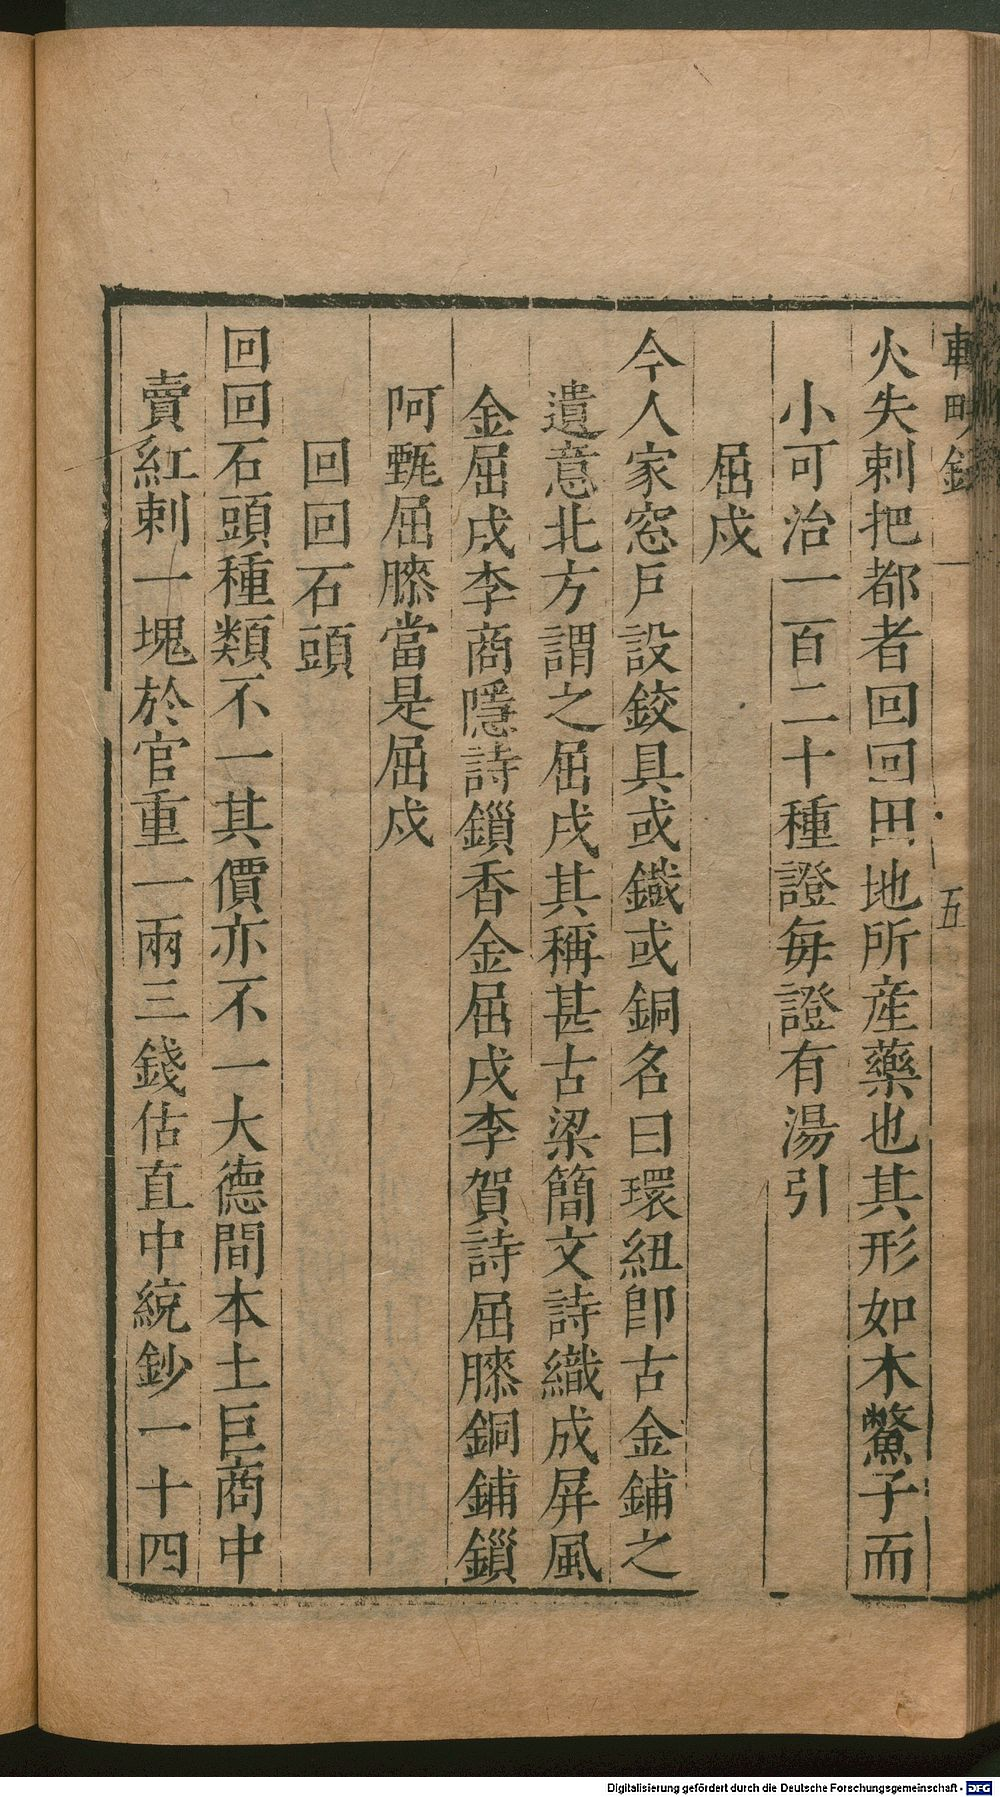 輟畊錄 一 五
火失剌把都者回回田地所産藥也其形如木鱉子而
小可治一百二十種證每證有湯引
屈戍
今人家窓戶設鉸具或鐵或銅名曰環紐卽古金鋪之
遺意北方謂之屈戌其稱甚古梁簡文詩織成屏風
金屈戌李商隱詩鎻香金屈戌李賀詩屈膝銅鋪鎻
阿甄屈膝當是屈戍
回回石頭
回回石頭種類不一其價亦不一大德間本土巨商中
賣紅剌一塊於官重一兩三錢估直中統鈔一十四
Digitalisierung gefördert durch die Deutsche Forschungsgemeinschaft - DFG